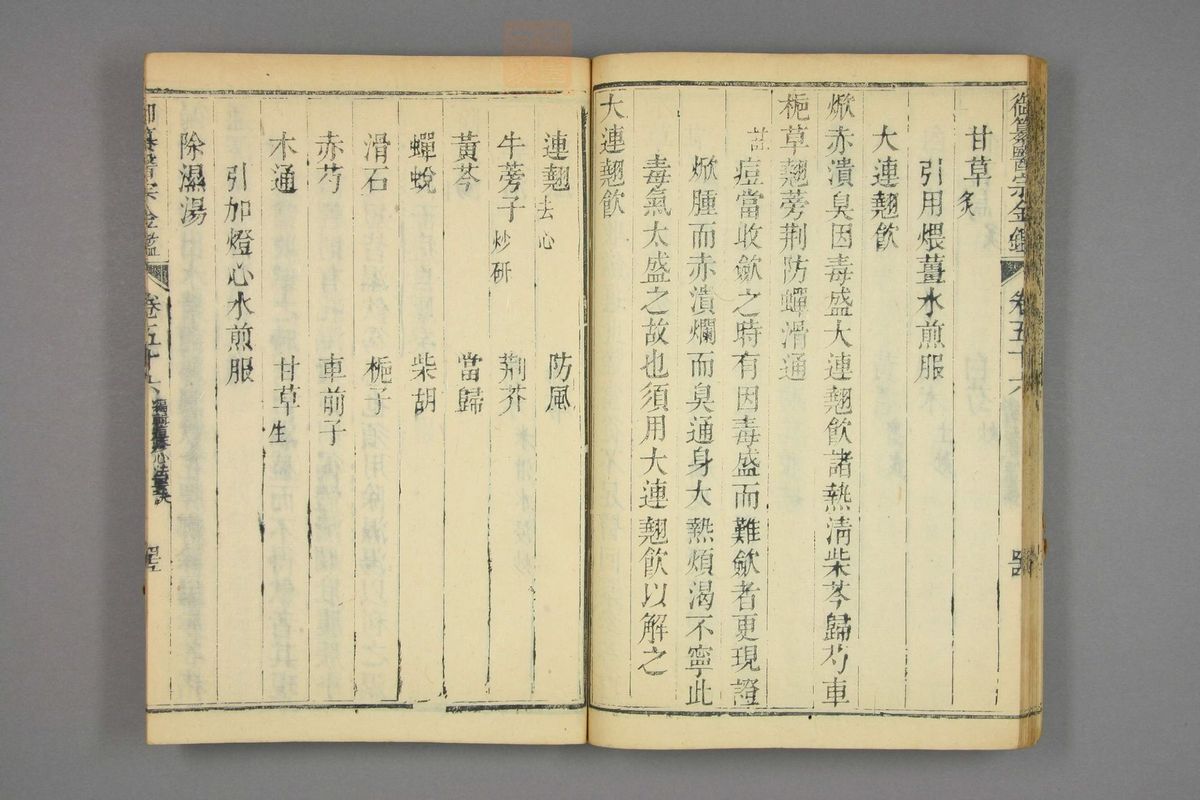 御纂醫宗金鑑 卷五十六
甘草炙
引用煨薑水煎服
大連翹飲
焮赤潰臭因毒盛大連翹飲諸熱淸柴芩歸芍車
梔草翹蒡荆防蟬滑通
註 痘當收斂之時有因毒盛而難斂者更現證
焮腫而赤潰爛而臭通身大熱煩渴不寧此
毒氣太盛之故也須用大連翹飲以解之
大連翹飲
連翹去心 防風
牛蒡子炒研 荆芥
黃芩 當歸
蟬蛻 柴胡
滑石 梔子
赤芍 車前子
木通 甘草生
引加燈心水煎服
除濕湯
御纂醫宗金鑑 卷五十六